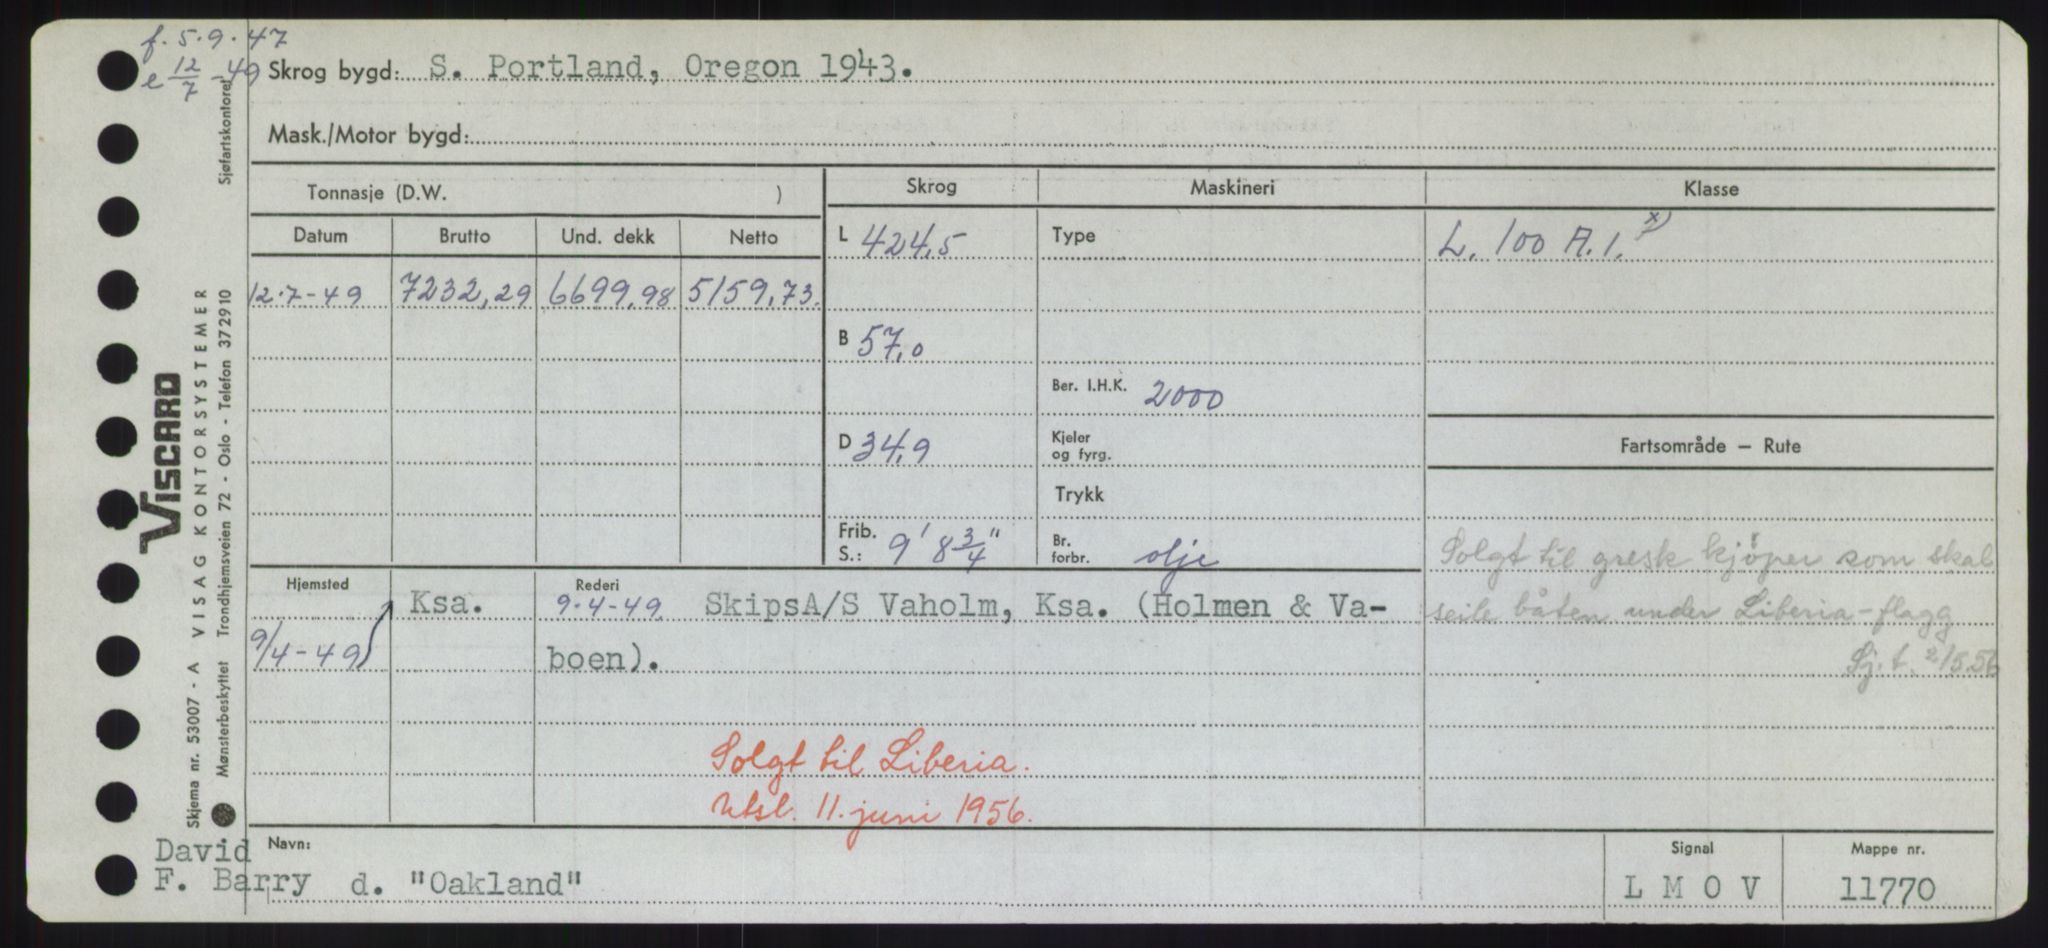 f. 5.9.47
e 12/7 -49
Skrog bygd: S. Portland, Oregon 1943.
Mask./Motor bygd:
Tonnasje (D.W. )
Skrog
Maskineri
Klasse
Datum
Brutto
Und. dekk
Netto
L 424,5
Type
L. 100 A.1. x)
12.7-49
7232,29
6699,98
5159,73.
B 57,0
Ber. I.H.K. 2000
D 34,9
Kjeler
og fyrg.
Fartsområde — Rute
Trykk
Frib.
S.: 9' 8 3/4"
Br.
forbr. olje
Solgt til gresk kjøper som skal
seile båten under Liberia-flagg
Sj.t. 2/5.56
Hjemsted
Rederi
9/4-49
Ksa.
9-4-49.
SkipsA/S Vaholm, Ksa. (Holmen & Va-
boen).
Solgt til Liberia.
Utsl. 11. juni 1956.
David
F. Barry
Navn:
d. "Oakland"
Signal
L M O V
Mappe nr.
11770
Skjema nr. 53007 - A VISAG KONTORSYSTEMER
VISCARD
Mønsterbeskyttet Trondhjemsveien 72 - Oslo - Telefon 372910
Sjøfartskontoret